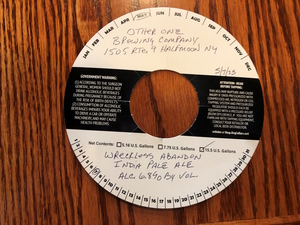 JAN FEB MAR APR MAY JUN JUL AUG SEP OCT NOV DEC
OTHER ONE
BREWING COMPANY
1505 RTE 9 HALFMOON NY
5/7/25
GOVERNMENT WARNING:
(1) ACCORDING TO THE SURGEON
GENERAL, WOMEN SHOULD NOT
DRINK ALCOHOLIC BEVERAGES
DURING PREGNANCY BECAUSE OF
THE RISK OF BIRTH DEFECTS.
(2) CONSUMPTION OF ALCOHOLIC
BEVERAGES IMPAIRS YOUR ABILITY
TO DRIVE A CAR OR OPERATE
MACHINERY, AND MAY CAUSE
HEALTH PROBLEMS.
ATTENTION - READ
BEFORE TAPPING:
Net Contents: 5.16 U.S. Gallons 7.75 U.S. Gallons 15.5 U.S. Gallons
WRECKLESS ABANDON
INDIA PALE ALE
ALC. 6.8% BY VOL